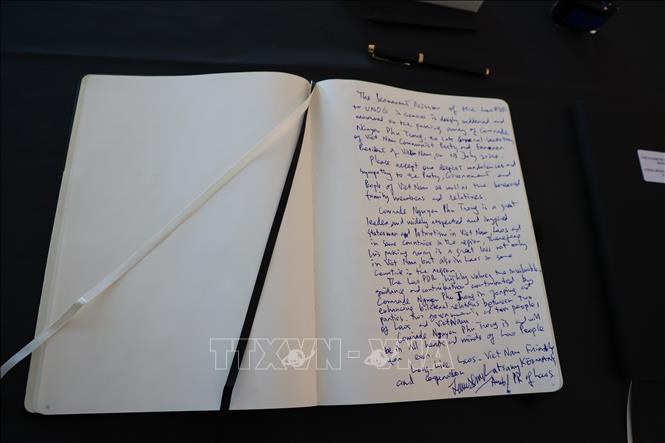 The Permanent Mission of the Lao PDR
to UNOG in Geneva is deeply saddened and
mourned on the passing away of Comrade
Nguyen Phu Trong, the late General Secretary
of Viet Nam Communist Party and former
President of Viet Nam, on 19 July 2024.
Please accept our deepest condolences and
sympathy to the Party, Government and
People of Viet Nam as well as the bereaved
family members and relatives.
Comrade Nguyen Phu Trong is a great
leader and widely respected and
statesman and in Viet Nam, Laos and
in some countries in the region, therefore
his passing away is a great loss not only
in Viet Nam but also in Laos in some
countries in the region.
The Lao PDR highly values the invaluable
guidance and contribution contributed by
Comrade Nguyen Phu Trong in and
enhancing bilateral relations between two
parties, two governments of two peoples
of Laos and Viet Nam.
Comrade Nguyen Phu Trong is and will
be in all hearts and minds of Lao People
for ever.
Long Live Laos - Viet Nam Friendship
and cooperation
Amb/ PR of Laos.
TTXVN - VNA